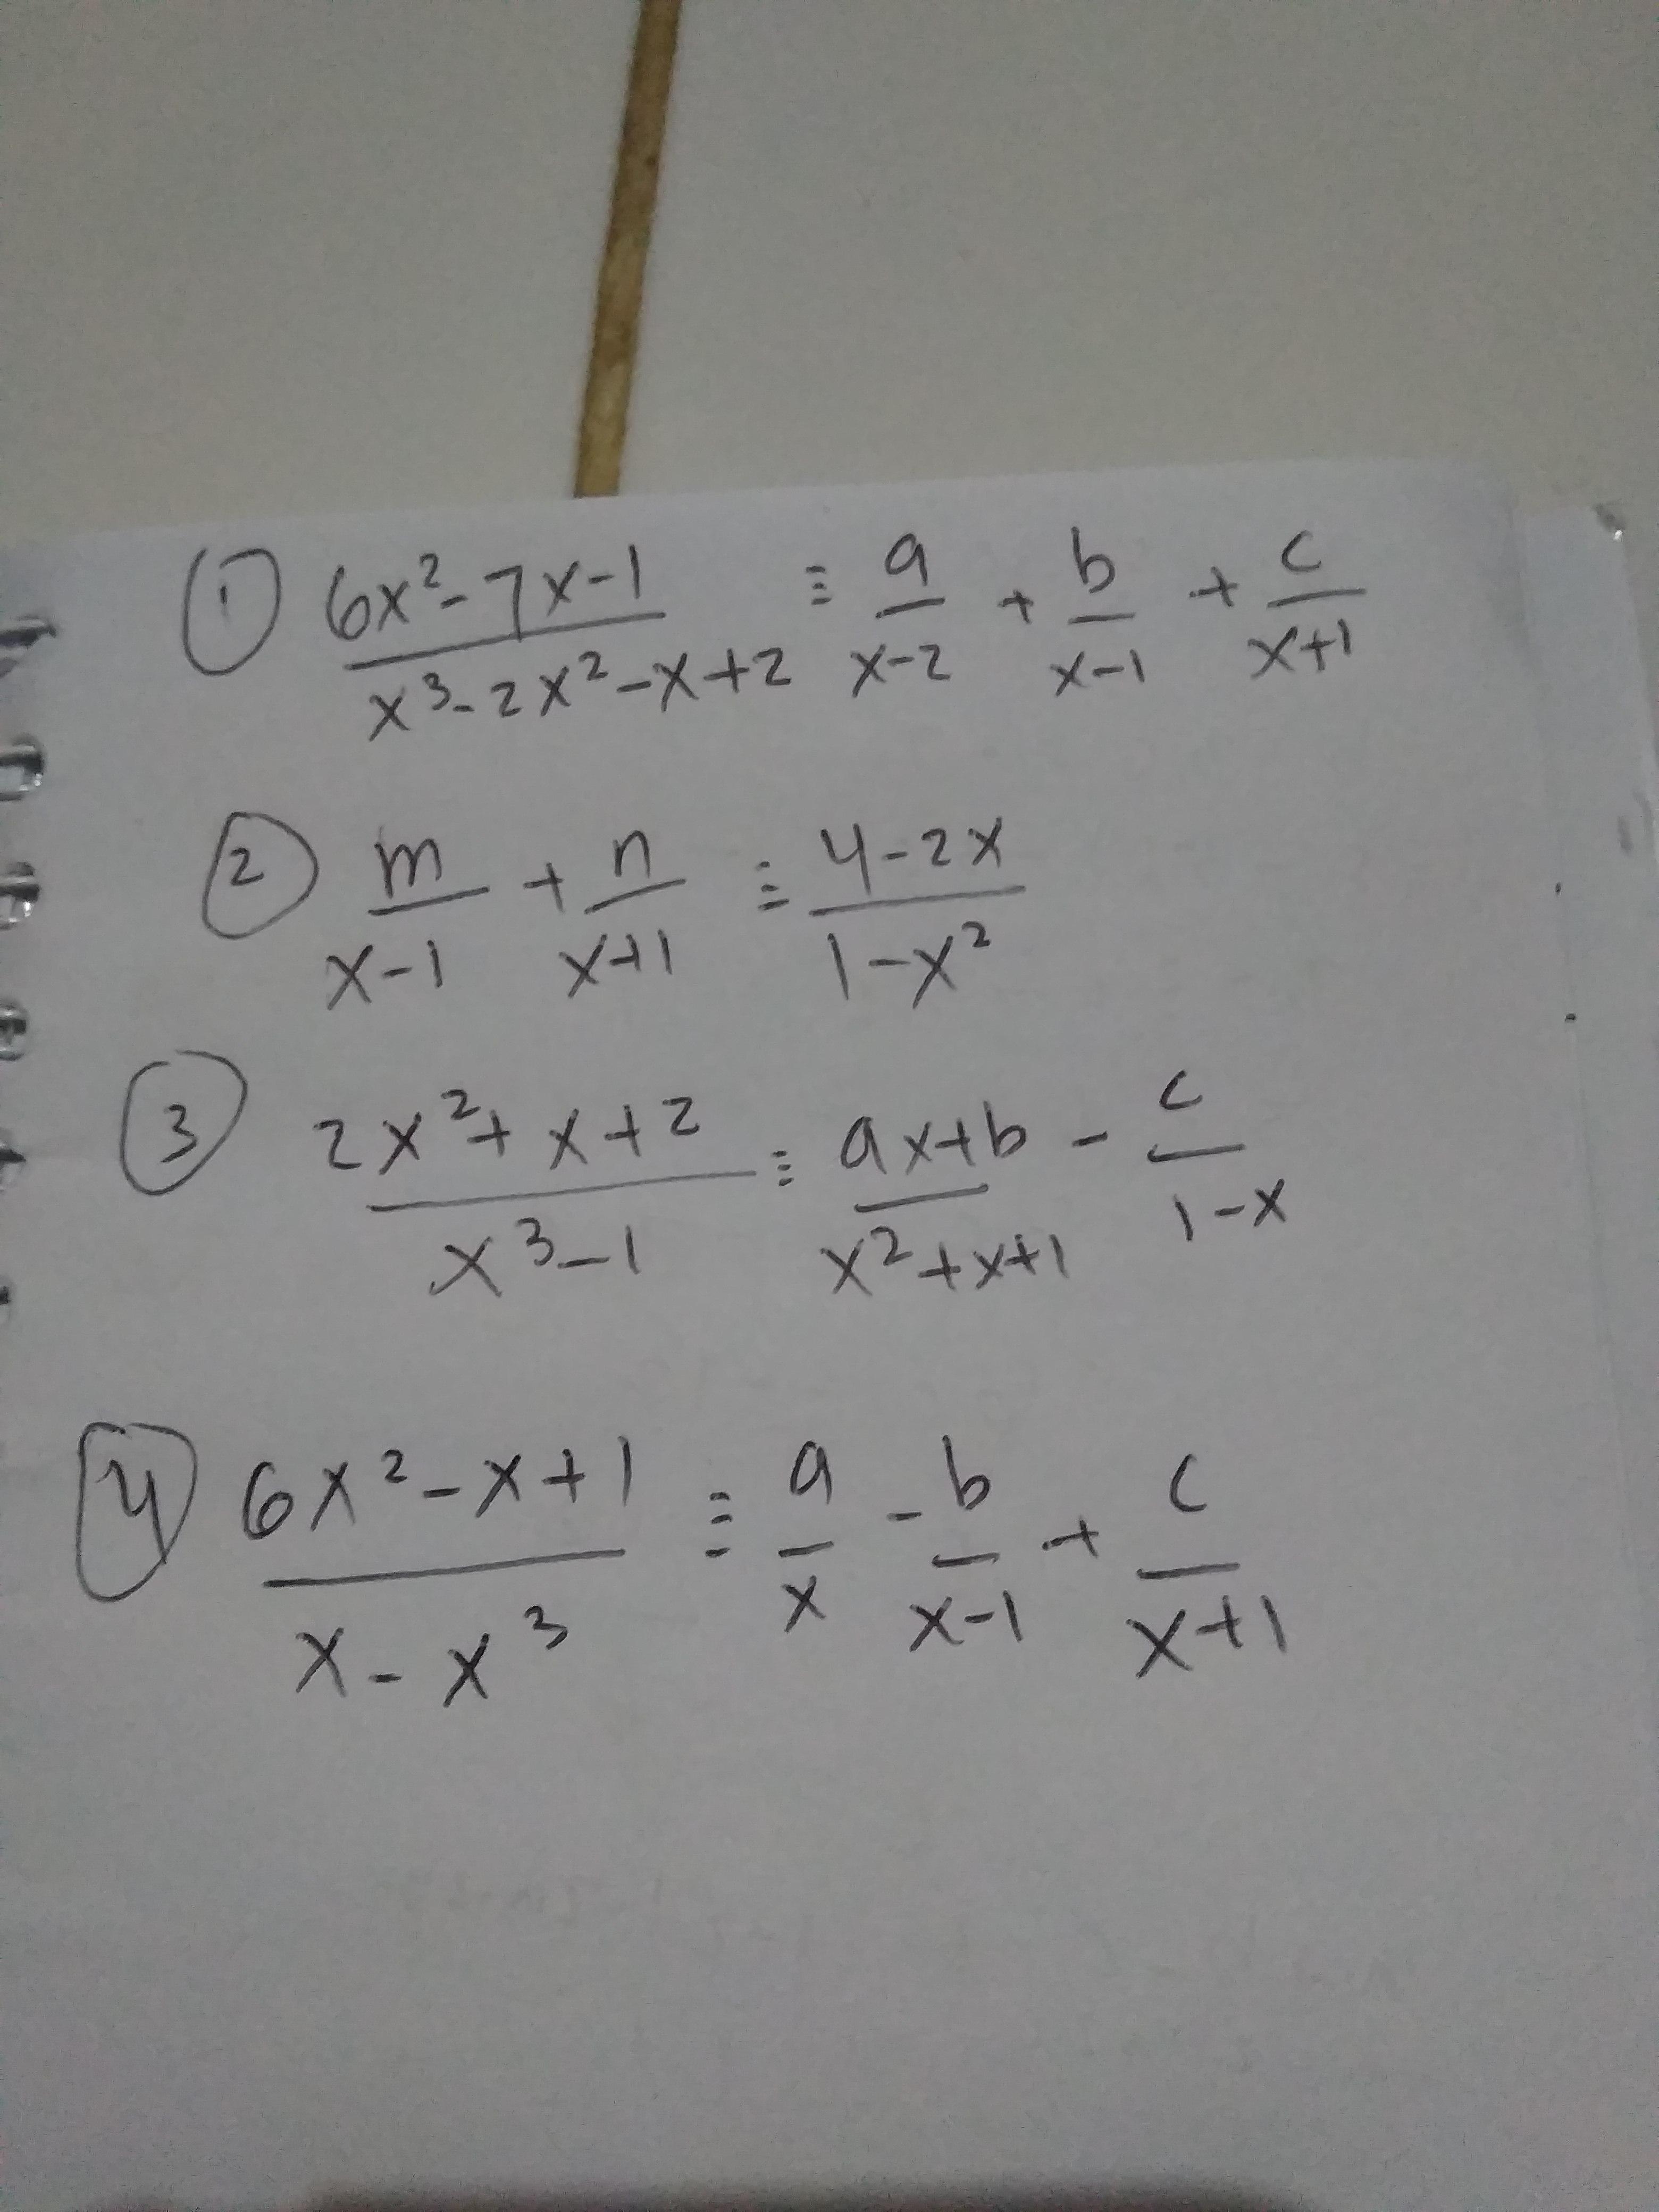 ① 6x²-7x-1 / x³-2x²-x+2 ≡ a/x-2 + b/x-1 + c/x+1
② m/x-1 + n/x+1 ≡ 4-2x / 1-x²
③ 2x²+x+2 / x³-1 ≡ ax+b / x²+x+1 - c/1-x
④ 6x²-x+1 / x-x³ ≡ a/x - b/x-1 + c/x+1